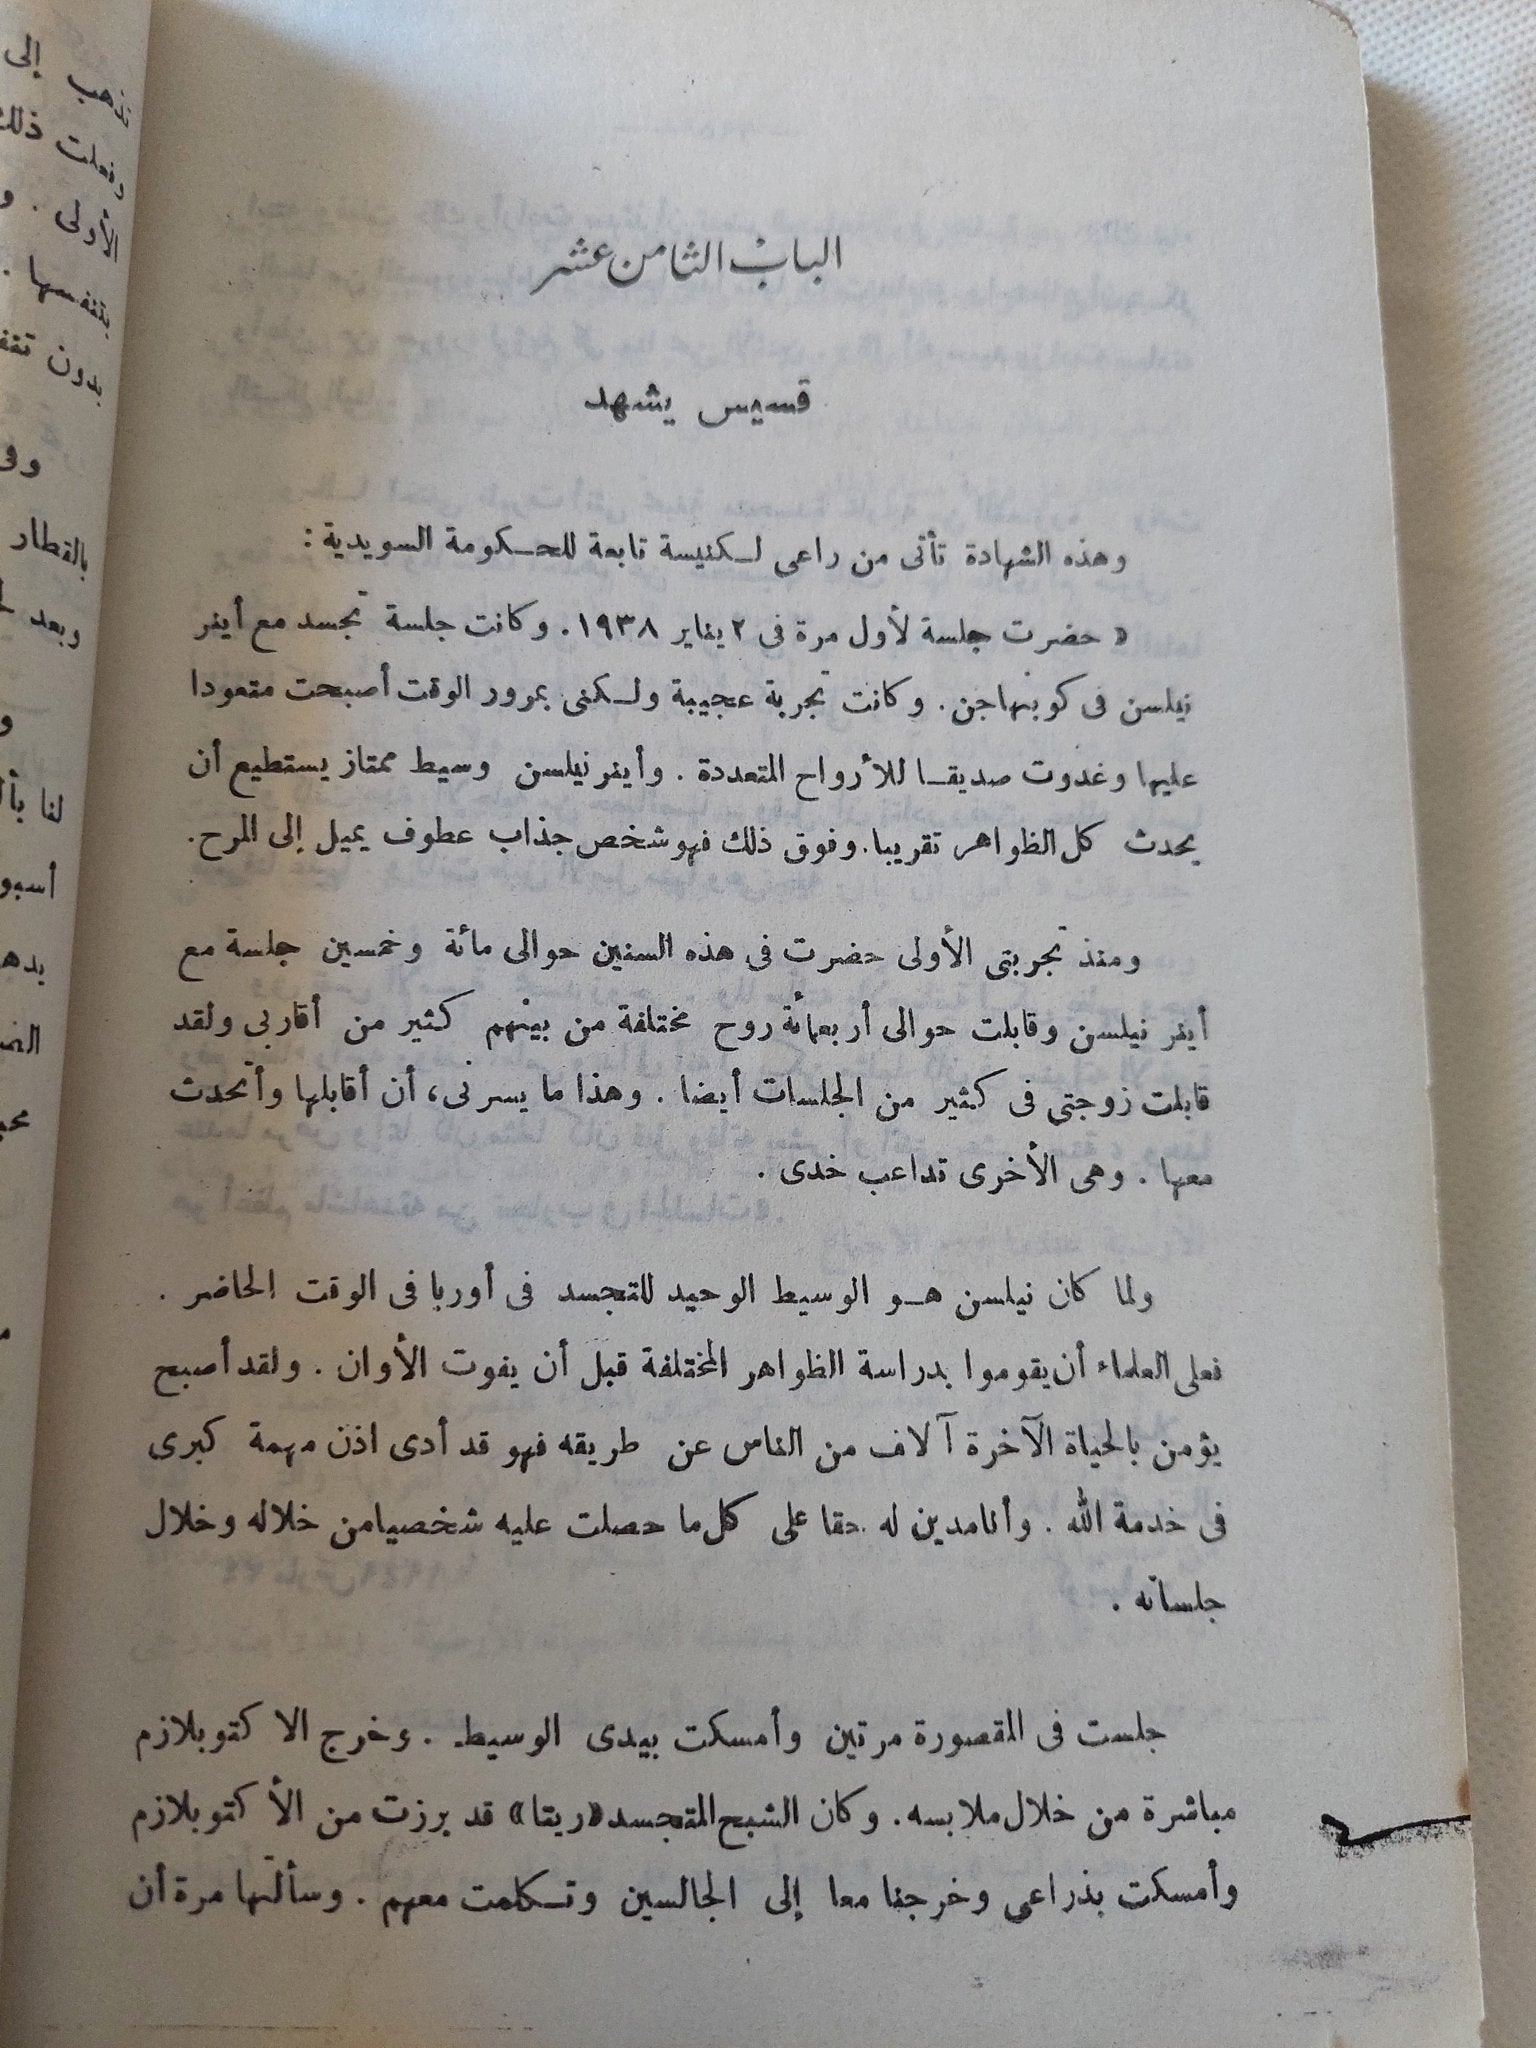 الباب الثامن عشر
قسيس يشهد
وهذه الشهادة تأتى من راعى لـكنيسة تابعة للحـكومة السويدية :
« حضرت جلسة لأول مرة فى ٢ يناير ١٩٣٨. وكانت جلسة تجسد مع أينر
نيلسن فى كوبنهاجن. وكانت تجربة عجيبة ولـكنى بمرور الوقت أصبحت متعودا
عليها وغدوت صديقـا للأرواح المتعددة . وأينر نيلسن وسيط ممتاز يستطيع أن
يحدث كل الظواهر تقريبا. وفوق ذلك فهو شخص جذاب عطوف يميل إلى المرح.
ومنذ تجربتى الأولى حضرت فى هذه السنين حوالى مائة وخمسين جلسة مع
أينر نيلسن وقابلت حوالى أربعمائة روح مختلفة من بينهم كثير من أقاربى ولقد
قابلت زوجتى فى كثير من الجلسات أيضا . وهذا ما يسرنى، أن أقابلها وأتحدث
معها . وهى الأخرى تداعب خدى .
ولما كان نيلسن هـو الوسيط الوحيد للتجسد فى أوربا فى الوقت الحاضر .
فعلى العلماء أن يقوموا بدراسة الظواهر المختلفة قبل أن يفوت الأوان . ولقد أصبح
يؤمن بالحياة الآخرة آلاف من الناس عن طريقه فهو قد أدى اذن مهمة كبرى
فى خدمة الله . وأنا مدين له حقا على كل ما حصلت عليه شخصيا من خلاله وخلال
جلساته .
جلست فى المقصورة مرتين وأمسكت بيدى الوسيط . وخرج الاكتوبلازم
مباشرة من خلال ملابسه. وكان الشبح المتجسد «ريتا» قد برزت من الأكتوبلازم
وأمسكت بذراعى وخرجنا معا إلى الجالسين وتـكلمت معهم . وسألتها مرة أن
تذهب إلى
وفعلت ذلك
الأولى . و
بتنفسها .
بدون
بالقطار
وبعد
لنا